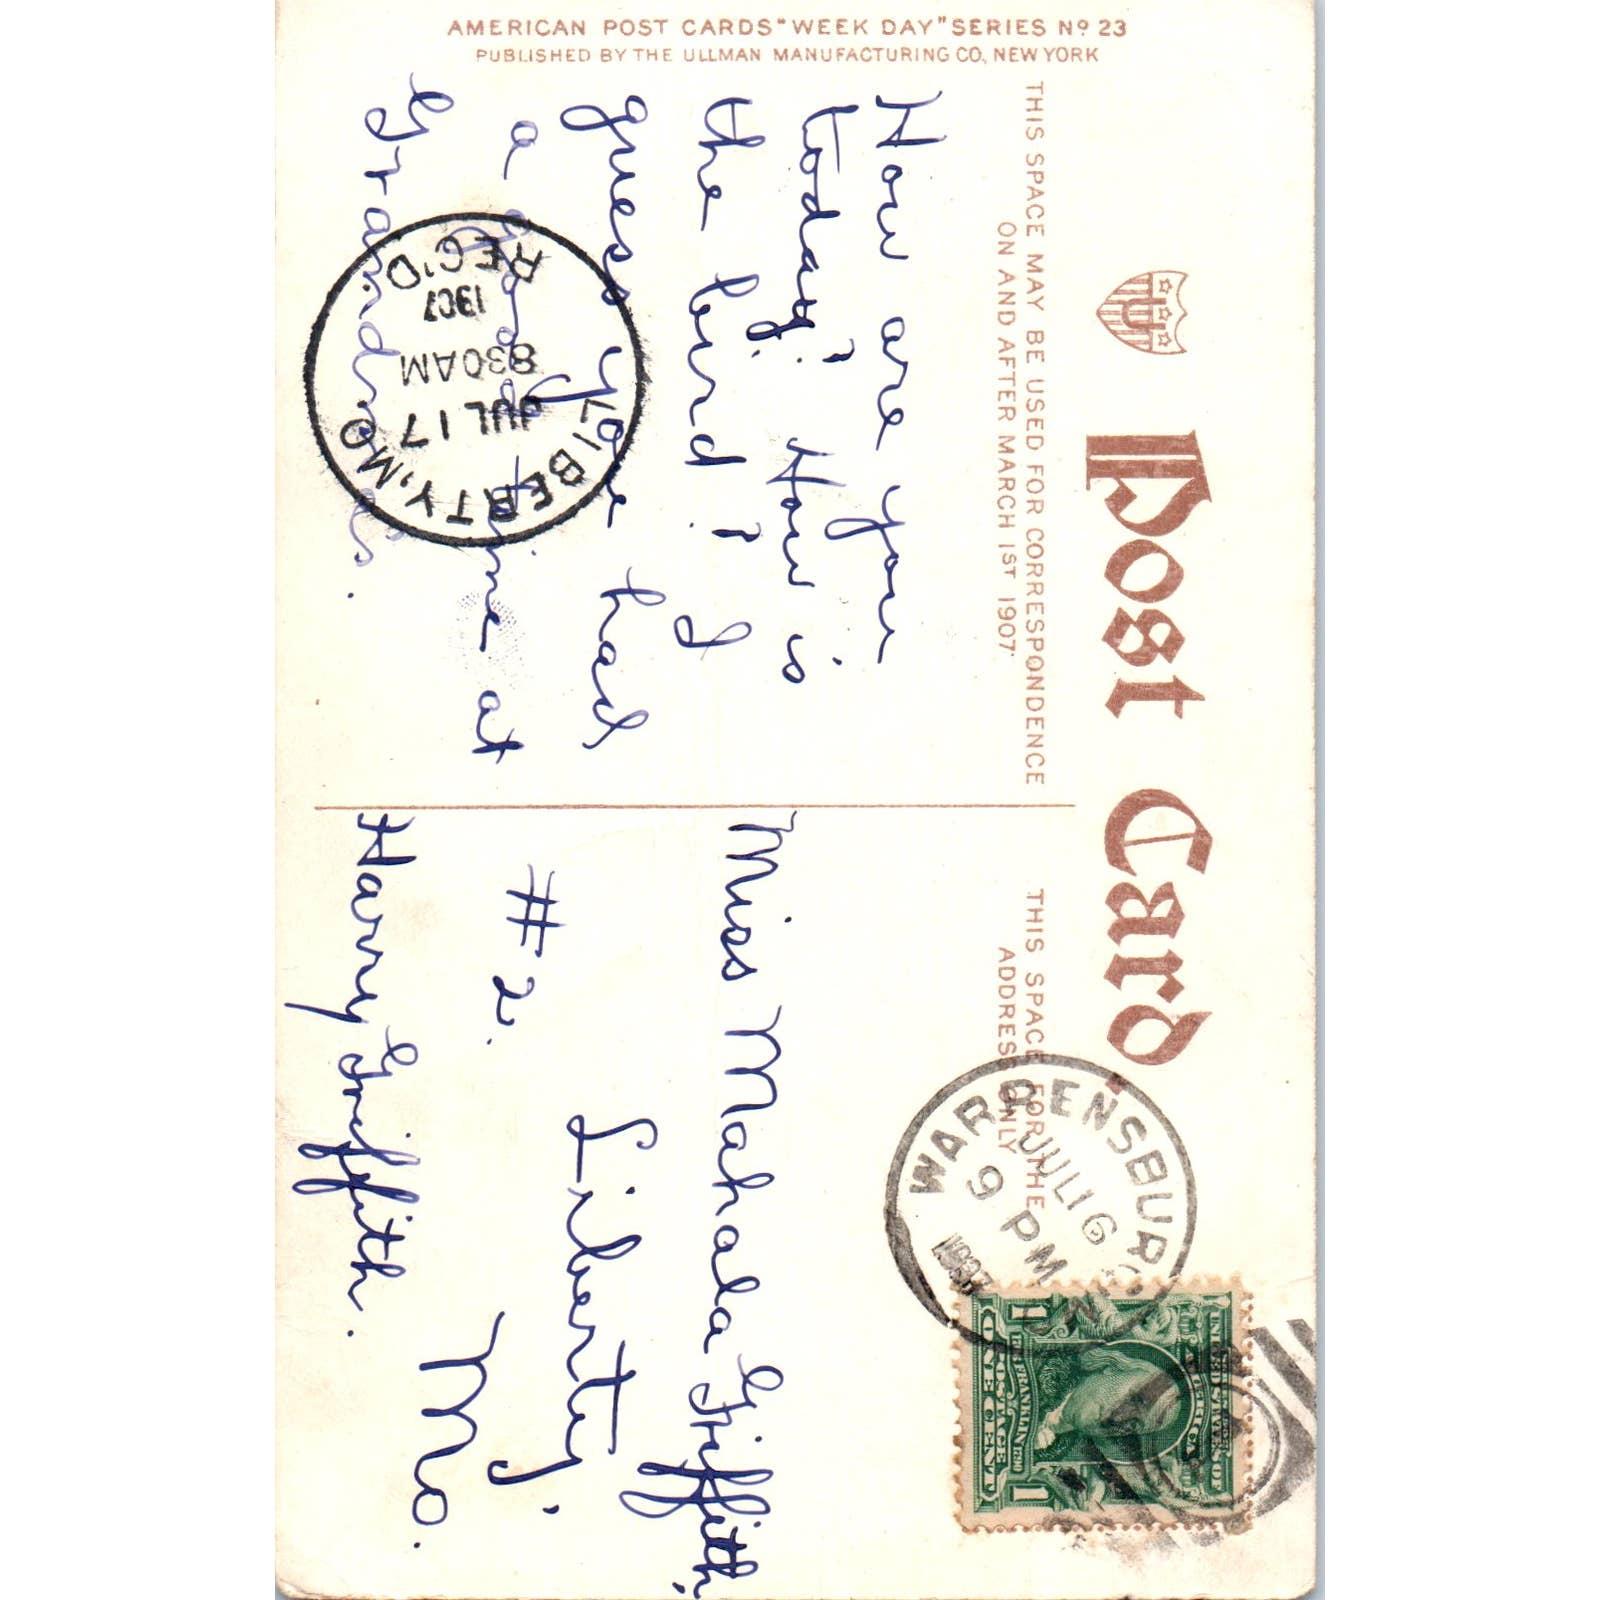 AMERICAN POST CARDS "WEEK DAY" SERIES Nº 23
PUBLISHED BY THE ULLMAN MANUFACTURING CO., NEW YORK
Post Card.
THIS SPACE MAY BE USED FOR CORRESPONDENCE
ON AND AFTER MARCH 1ST 1907
THIS SPACE FOR THE
ADDRESS ONLY
How are you
today? How is
the bird? I
guess you had
a good time at
Grandma's.
LIBERTY, MO.
JUL 17
830AM
1907
REC'D.
WARRENSBURG
JUL 16
9 PM
1907
UNITED STATES OF AMERICA
FRANKLIN
POSTAGE
1 ONE CENT 1
Miss Mahala Griffith,
Liberty,
#2. Mo.
Harry Griffith.